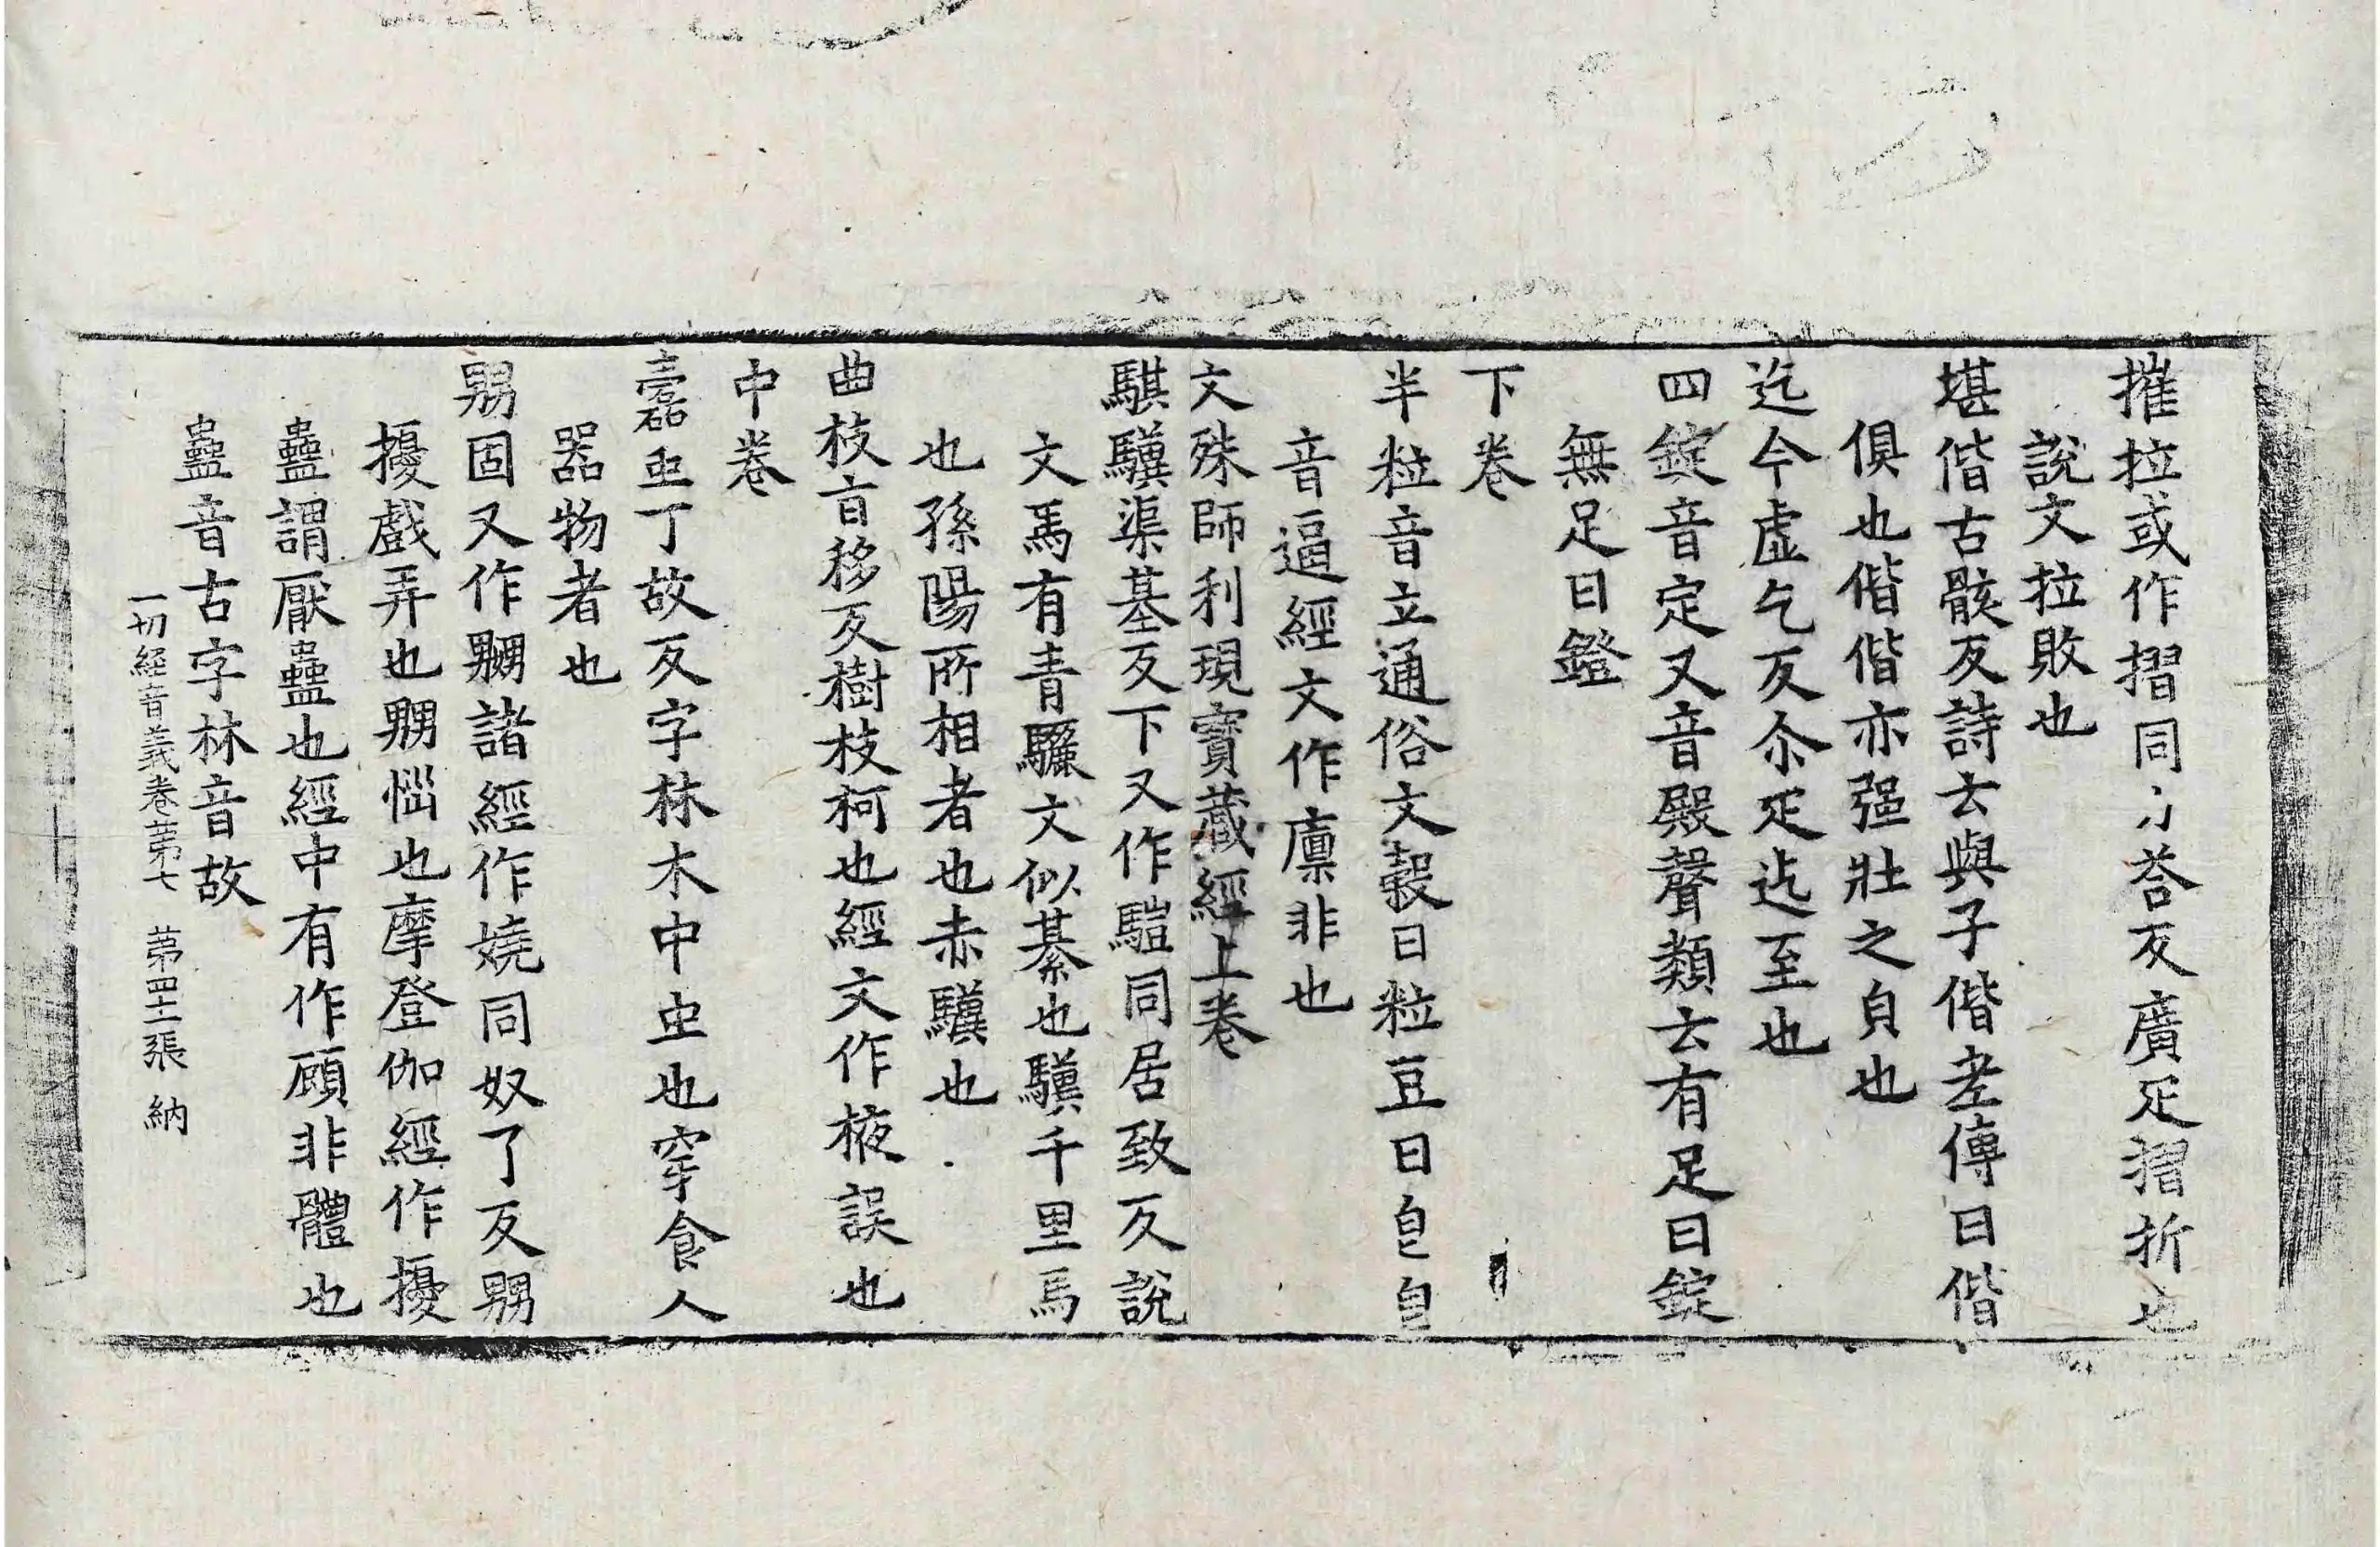 摧拉或作摺同力荅反廣疋摺折也
說文拉敗也
堪偕古骸反詩云與子偕老傳曰偕
俱也偕偕亦強壯之皃也
迄今虛乞反尒疋迄至也
四錠音定又音殿聲類云有足曰錠
無足曰鐙
下卷
半粒音立通俗文穀曰粒豆曰皀皀
音逼經文作廩非也
文殊師利現寶藏經上卷
騏驥渠基反下又作𩧉同居致反說
文馬有青驪文似綦也驥千里馬
也孫陽所相者也赤驥也
曲枝𣅀移反樹枝柯也經文作棭誤也
中卷
蠹虫丁故反字林木中虫也穿食人
器物者也
嬲固又作嬲諸經作嬈同奴了反嬲
擾戲弄也嬲惱也摩登伽經作擾
蠱謂厭蠱也經中有作顧非體也
蠱音古字林音故
一切經音義卷第七 第四十二張 納